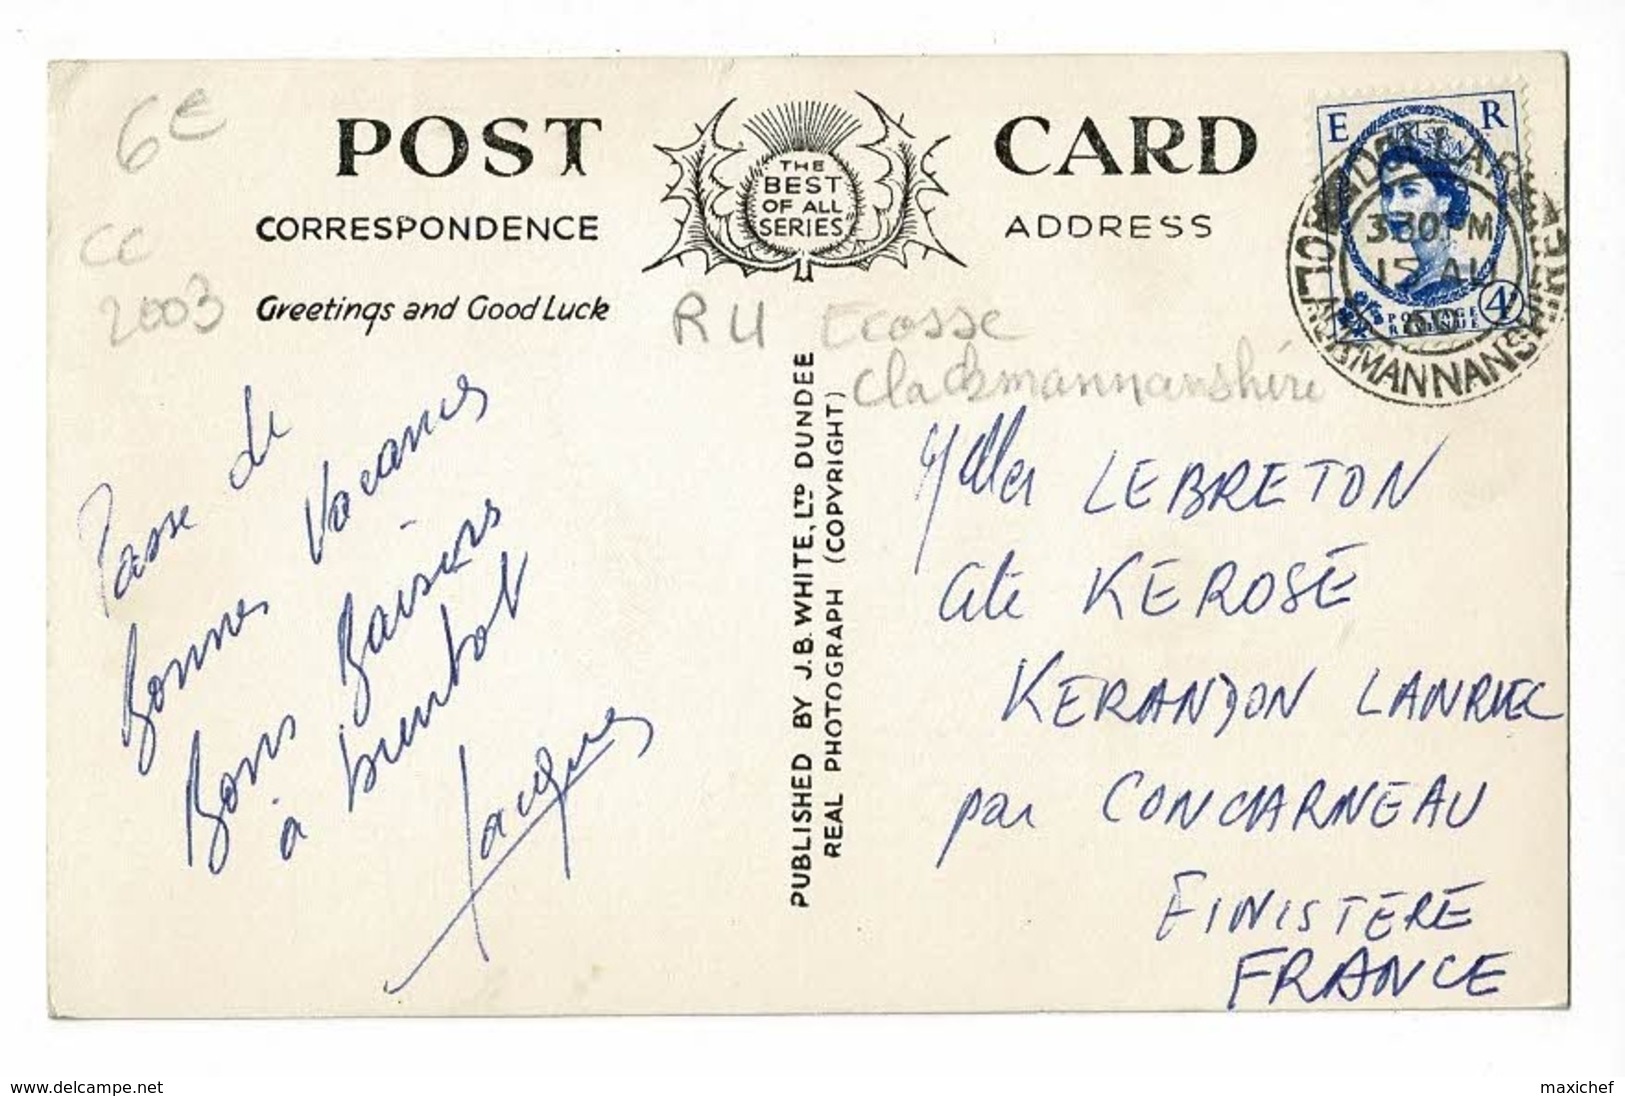 6€
CC
2003
POST CARD
CORRESPONDENCE
ADDRESS
THE
BEST
OF ALL
SERIES
Greetings and Good Luck
RU Ecosse
Clackmannanshire
E R
POSTAGE
REVENUE
4D
3 30 PM
15 AU
CLACKMANNANSHIRE
PUBLISHED BY J.B. WHITE, LTD DUNDEE
REAL PHOTOGRAPH (COPYRIGHT)
Passe de
Bonnes Vacances
Bons Baisers
à bientot
Jacques
LEBRETON
Cité KEROSE
KERANDON LANRIEC
par CONCARNEAU
FINISTERE
FRANCE
www.delcampe.net
maxichef